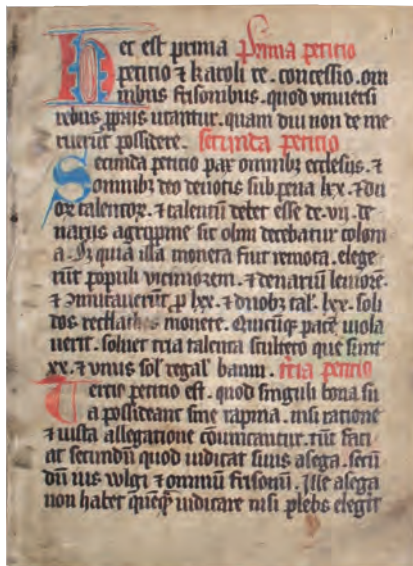 Hec est prima Prima peticio
peticio ⁊ karoli re. concessio. om
nibus frisonibus. quod vniuersi
rebus ꝓpiis utantur. quam diu non de me
ruerūt possidere. secunda peticio
Secunda peticio pax omnibꝫ ecclesiis. ⁊
omnibꝫ deo deuotis sub pena lxx. ⁊ du
oꝝ talentoꝝ. ⁊ talentū debet esse de. vij. de
narijs agrippine sic olim decebatur colonī
a. Sꝫ quia illa moneta fuit remota. elege
rūt populi viciniorem. ⁊ denariū leuiorē.
⁊ ꝯmutauerūt ꝓ lxx. ⁊ duobꝫ tal'. lxx. soli
dos monete. Quicūqꝫ pacē uiola
uerit. soluet tria talenta sculteto que sunt
xx. ⁊ vnus sol' regal' banni. tᷓcia peticio
Tercia peticio est. quod singuli bona su
a possideant sine rapina. nisi ratione
⁊ iusta allegatione cōuincantur. tūc faci
at secundū quod iudicat suus asega. secū
dū ius vulgi ⁊ omniū frisonū. Ille asega
non habet quēqꝫ iudicare nisi plebs elegit